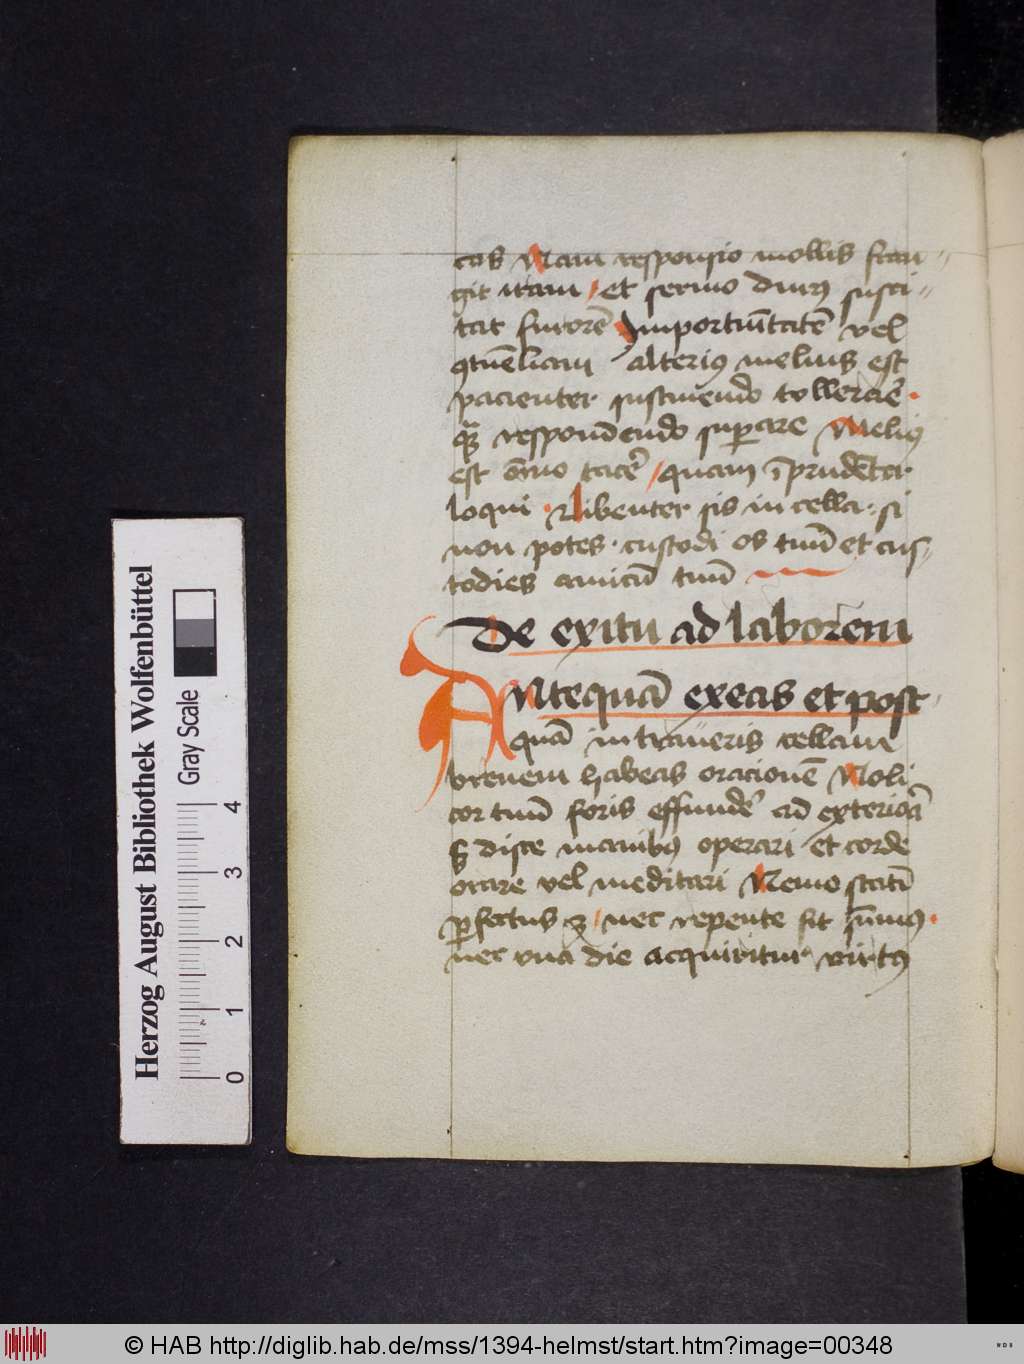 cas Nam responsio mollis fran
git iram / et sermo durus susci
tat furorē Importunītatē vel
querelam alterius melius est
pacienter sustinendo tollerare
qᷓ respondendo superare Melius
est om̄no tacere / quam īprudēter
loqui · Libenter sis in cella · si
non potes · custodi os tuū et cus
todies amicū tuū
De exitu ad laborem
ANtequā exeas et post
quā intraueris cellam
breuem habeas oracionē Noli
cor tuū foris effundere ad exteriora
sꝫ disce manibus operari et corde
orare vel meditari Nemo statī
ꝑfectus ē / nec repente fit sūmus
nec vna die acquiritur virtus
Herzog August Bibliothek Wolfenbüttel
Gray Scale
0 1 2 3 4
© HAB http://diglib.hab.de/mss/1394-helmst/start.htm?image=00348